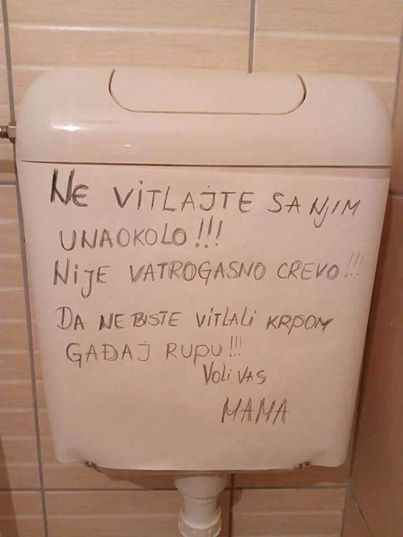 NE VITLAJTE SA NJIM
UNAOKOLO!!!
NIJE VATROGASNO CREVO!!!
DA NE BISTE VITLALI KRPOM
GAĐAJ RUPU!!!
VOLI VAS
MAMA